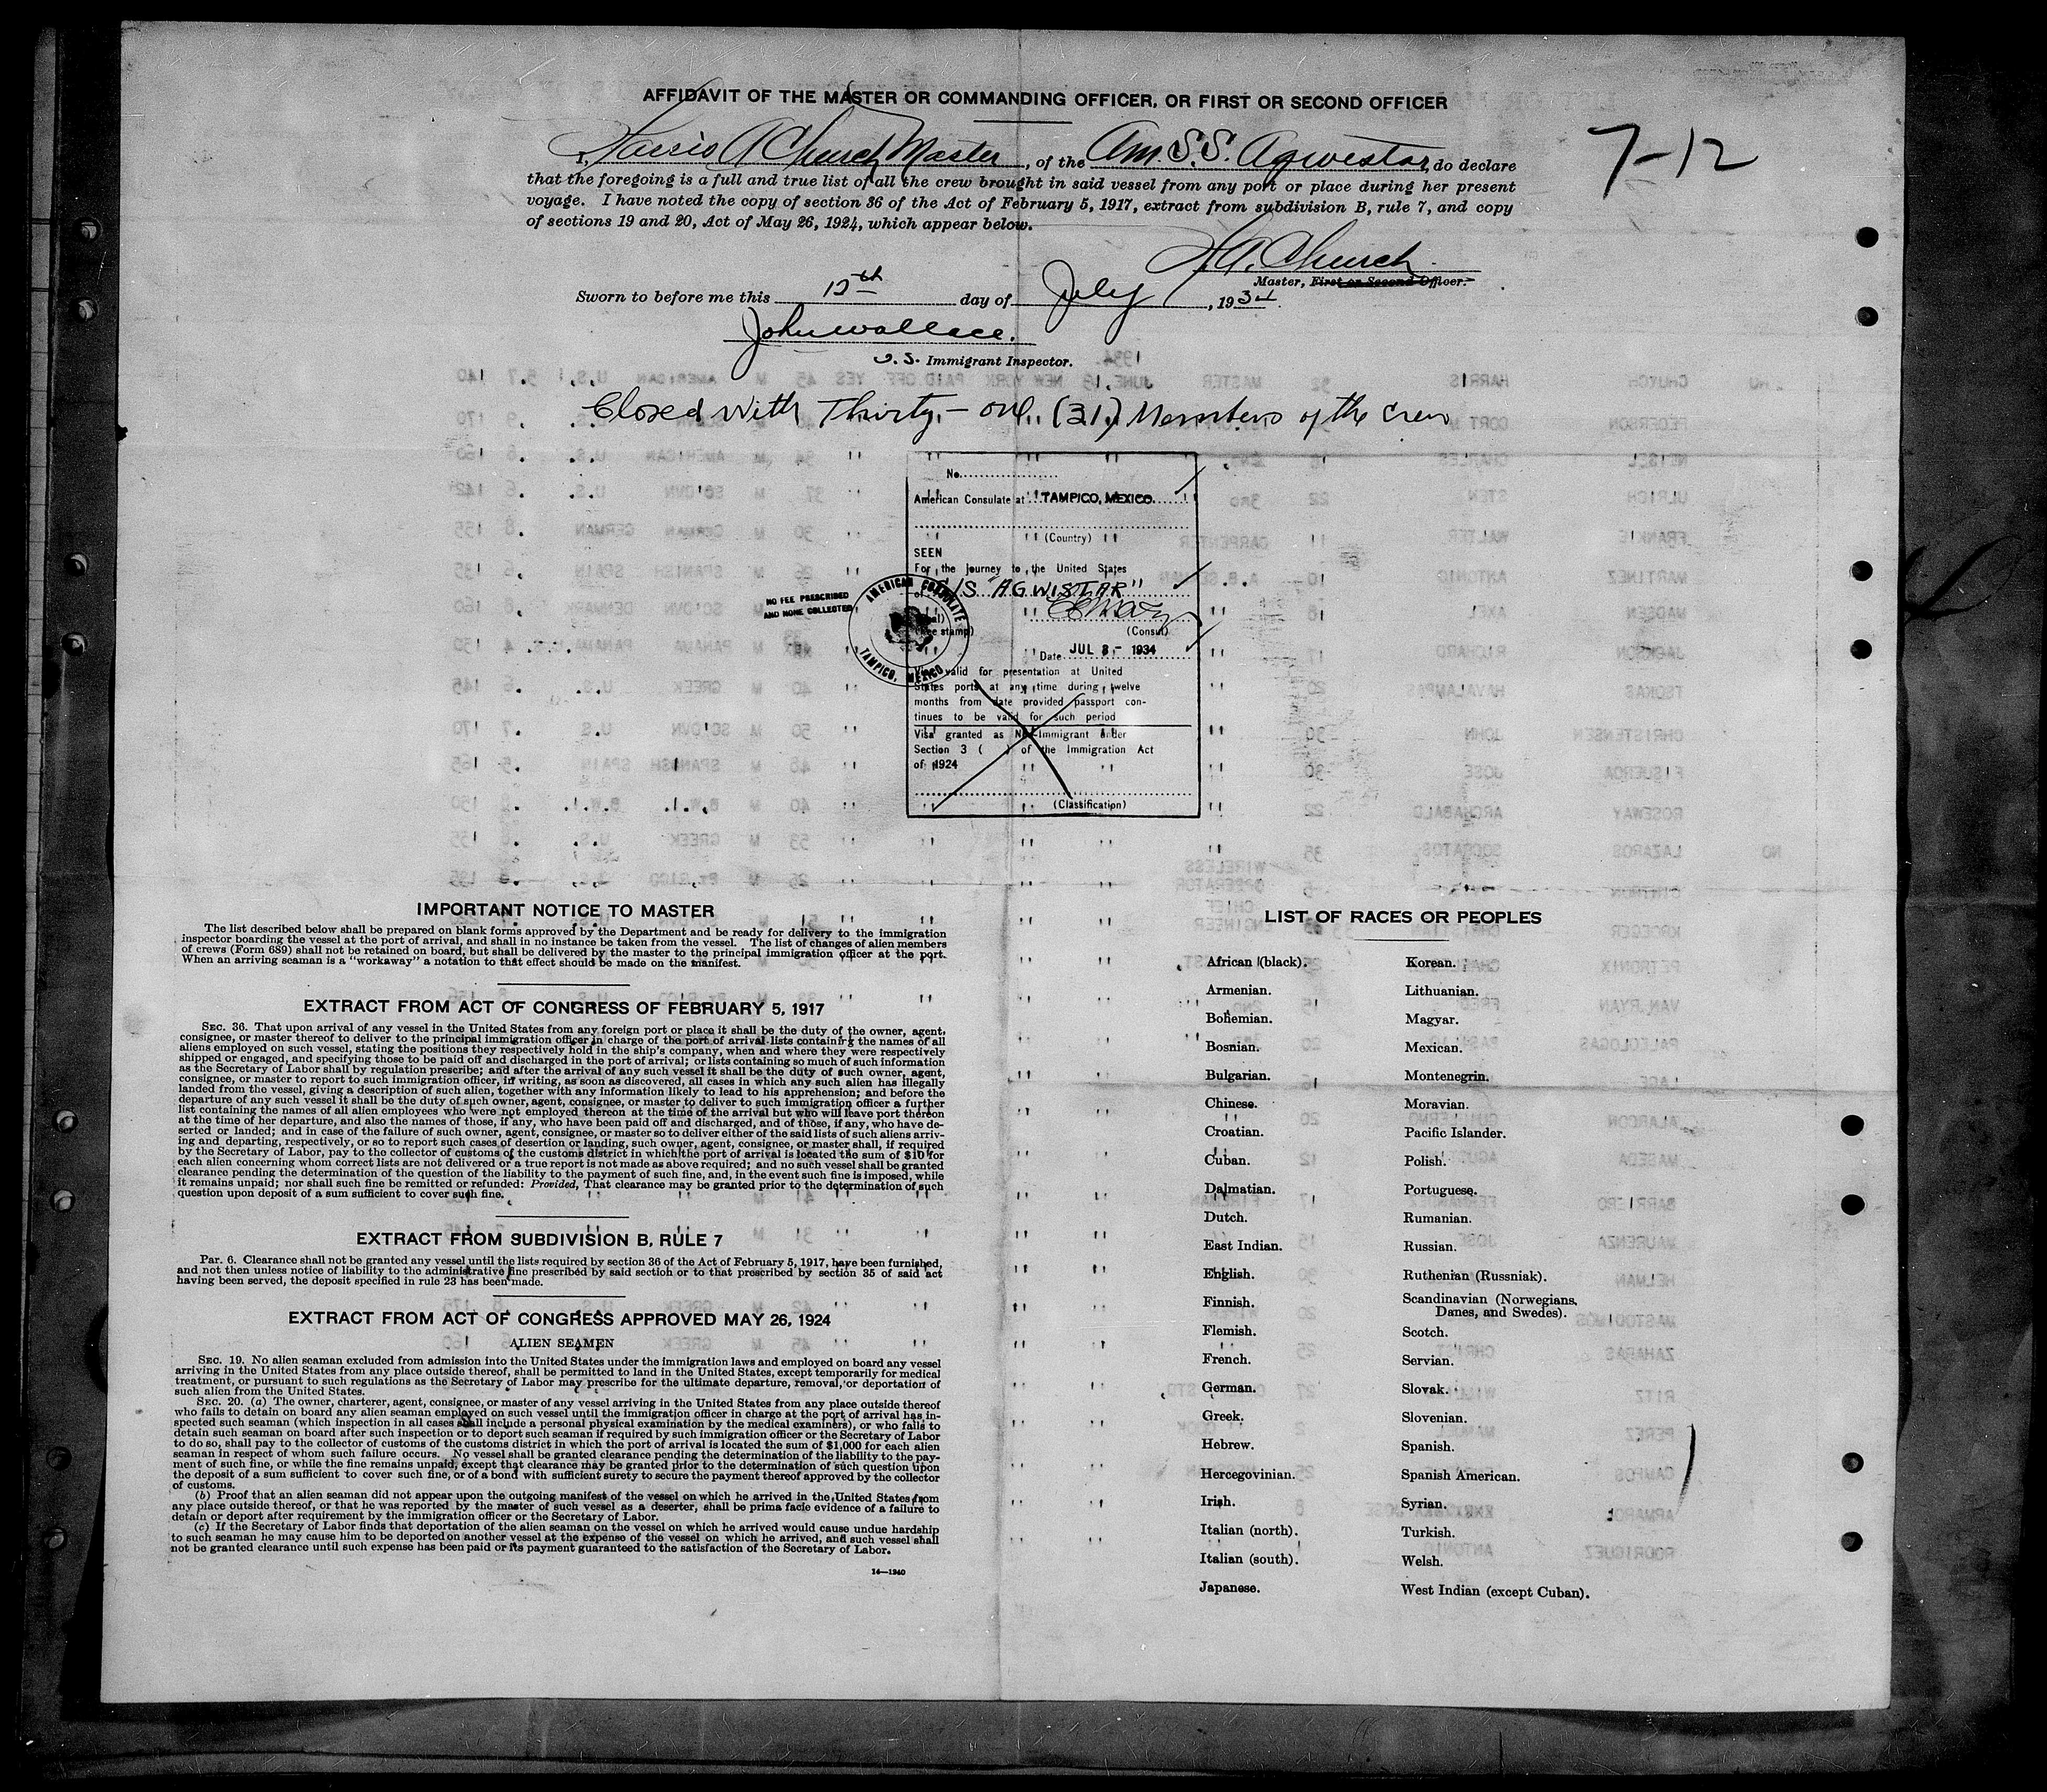 AFFIDAVIT OF THE MASTER OR COMMANDING OFFICER, OR FIRST OR SECOND OFFICER
7-12
I, Harris A Church Master, of the Am. S.S. Agwistar, do declare
that the foregoing is a full and true list of all the crew brought in said vessel from any port or place during her present
voyage. I have noted the copy of section 36 of the Act of February 5, 1917, extract from subdivision B, rule 7, and copy
of sections 19 and 20, Act of May 26, 1924, which appear below.
H.A. Church
Master, First or Second Officer.
Sworn to before me this 12th day of July, 1934.
John Wallace.
U.S. Immigrant Inspector.
Closed With Thirty-one (31) Members of the Crew
No.
American Consulate at TAMPICO, MEXICO
(Country)
SEEN
For the journey to the United States
of S/S "AGWISTAR"
NO FEE PRESCRIBED
AND NONE COLLECTED
AMERICAN CONSULATE
TAMPICO, MEXICO
(Consul)
Date JUL 8 - 1934
Visa valid for presentation at United
States ports at any time during twelve
months from date provided passport con-
tinues to be valid for such period
Visa granted as Non-Immigrant under
Section 3 ( ) of the Immigration Act
of 1924
(Classification)
IMPORTANT NOTICE TO MASTER
The list described below shall be prepared on blank forms approved by the Department and be ready for delivery to the immigration
inspector boarding the vessel at the port of arrival, and shall in no instance be taken from the vessel. The list of changes of alien members
of crews (Form 689) shall not be retained on board, but shall be delivered by the master to the principal immigration officer at the port.
When an arriving seaman is a "workaway" a notation to that effect should be made on the manifest.
EXTRACT FROM ACT OF CONGRESS OF FEBRUARY 5, 1917
SEC. 36. That upon arrival of any vessel in the United States from any foreign port or place it shall be the duty of the owner, agent,
consignee, or master thereof to deliver to the principal immigration officer in charge of the port of arrival lists containing the names of all
aliens employed on such vessel, stating the positions they respectively hold in the ship's company, when and where they were respectively
shipped or engaged, and specifying those to be paid off and discharged in the port of arrival; or lists containing so much of such information
as the Secretary of Labor shall by regulation prescribe; and after the arrival of any such vessel it shall be the duty of such owner, agent,
consignee, or master to report to such immigration officer, in writing, as soon as discovered, all cases in which any such alien has illegally
landed from the vessel, giving a description of such alien, together with any information likely to lead to his apprehension; and before the
departure of any such vessel it shall be the duty of such owner, agent, consignee, or master to deliver to such immigration officer a further
list containing the names of all alien employees who were not employed thereon at the time of the arrival but who will leave port thereon
at the time of her departure, and also the names of those, if any, who have been paid off and discharged, and of those, if any, who have de-
serted or landed; and in case of the failure of such owner, agent, consignee, or master so to deliver either of the said lists of such aliens arriv-
ing and departing, respectively, or so to report such cases of desertion or landing, such owner, agent, consignee, or master shall, if required
by the Secretary of Labor, pay to the collector of customs of the customs district in which the port of arrival is located the sum of $10 for
each alien concerning whom correct lists are not delivered or a true report is not made as above required; and no such vessel shall be granted
clearance pending the determination of the question of the liability to the payment of such fine, and, in the event such fine is imposed, while
it remains unpaid; nor shall such fine be remitted or refunded: Provided, That clearance may be granted prior to the determination of such
question upon deposit of a sum sufficient to cover such fine.
EXTRACT FROM SUBDIVISION B, RULE 7
Par. 6. Clearance shall not be granted any vessel until the lists required by section 36 of the Act of February 5, 1917, have been furnished,
and not then unless notice of liability to the administrative fine prescribed by said section or to that prescribed by section 35 of said act
having been served, the deposit specified in rule 23 has been made.
EXTRACT FROM ACT OF CONGRESS APPROVED MAY 26, 1924
ALIEN SEAMEN
SEC. 19. No alien seaman excluded from admission into the United States under the immigration laws and employed on board any vessel
arriving in the United States from any place outside thereof, shall be permitted to land in the United States, except temporarily for medical
treatment, or pursuant to such regulations as the Secretary of Labor may prescribe for the ultimate departure, removal, or deportation of
such alien from the United States.
SEC. 20. (a) The owner, charterer, agent, consignee, or master of any vessel arriving in the United States from any place outside thereof
who fails to detain on board any alien seaman employed on such vessel until the immigration officer in charge at the port of arrival has in-
spected such seaman (which inspection in all cases shall include a personal physical examination by the medical examiners), or who fails to
detain such seaman on board after such inspection or to deport such seaman if required by such immigration officer or the Secretary of Labor
to do so, shall pay to the collector of customs of the customs district in which the port of arrival is located the sum of $1,000 for each alien
seaman in respect of whom such failure occurs. No vessel shall be granted clearance pending the determination of the liability to the pay-
ment of such fine, or while the fine remains unpaid, except that clearance may be granted prior to the determination of such question upon
the deposit of a sum sufficient to cover such fine, or of a bond with sufficient surety to secure the payment thereof approved by the collector
of customs.
(b) Proof that an alien seaman did not appear upon the outgoing manifest of the vessel on which he arrived in the United States from
any place outside thereof, or that he was reported by the master of such vessel as a deserter, shall be prima facie evidence of a failure to
detain or deport after requirement by the immigration officer or the Secretary of Labor.
(c) If the Secretary of Labor finds that deportation of the alien seaman on the vessel on which he arrived would cause undue hardship
to such seaman he may cause him to be deported on another vessel at the expense of the vessel on which he arrived, and such vessel shall
not be granted clearance until such expense has been paid or its payment guaranteed to the satisfaction of the Secretary of Labor.
14—1240
LIST OF RACES OR PEOPLES
African (black). Korean.
Armenian. Lithuanian.
Bohemian. Magyar.
Bosnian. Mexican.
Bulgarian. Montenegrin.
Chinese. Moravian.
Croatian. Pacific Islander.
Cuban. Polish.
Dalmatian. Portuguese.
Dutch. Rumanian.
East Indian. Russian.
English. Ruthenian (Russniak).
Finnish. Scandinavian (Norwegians,
Danes, and Swedes).
Flemish. Scotch.
French. Servian.
German. Slovak.
Greek. Slovenian.
Hebrew. Spanish.
Hercegovinian. Spanish American.
Irish. Syrian.
Italian (north). Turkish.
Italian (south). Welsh.
Japanese. West Indian (except Cuban).